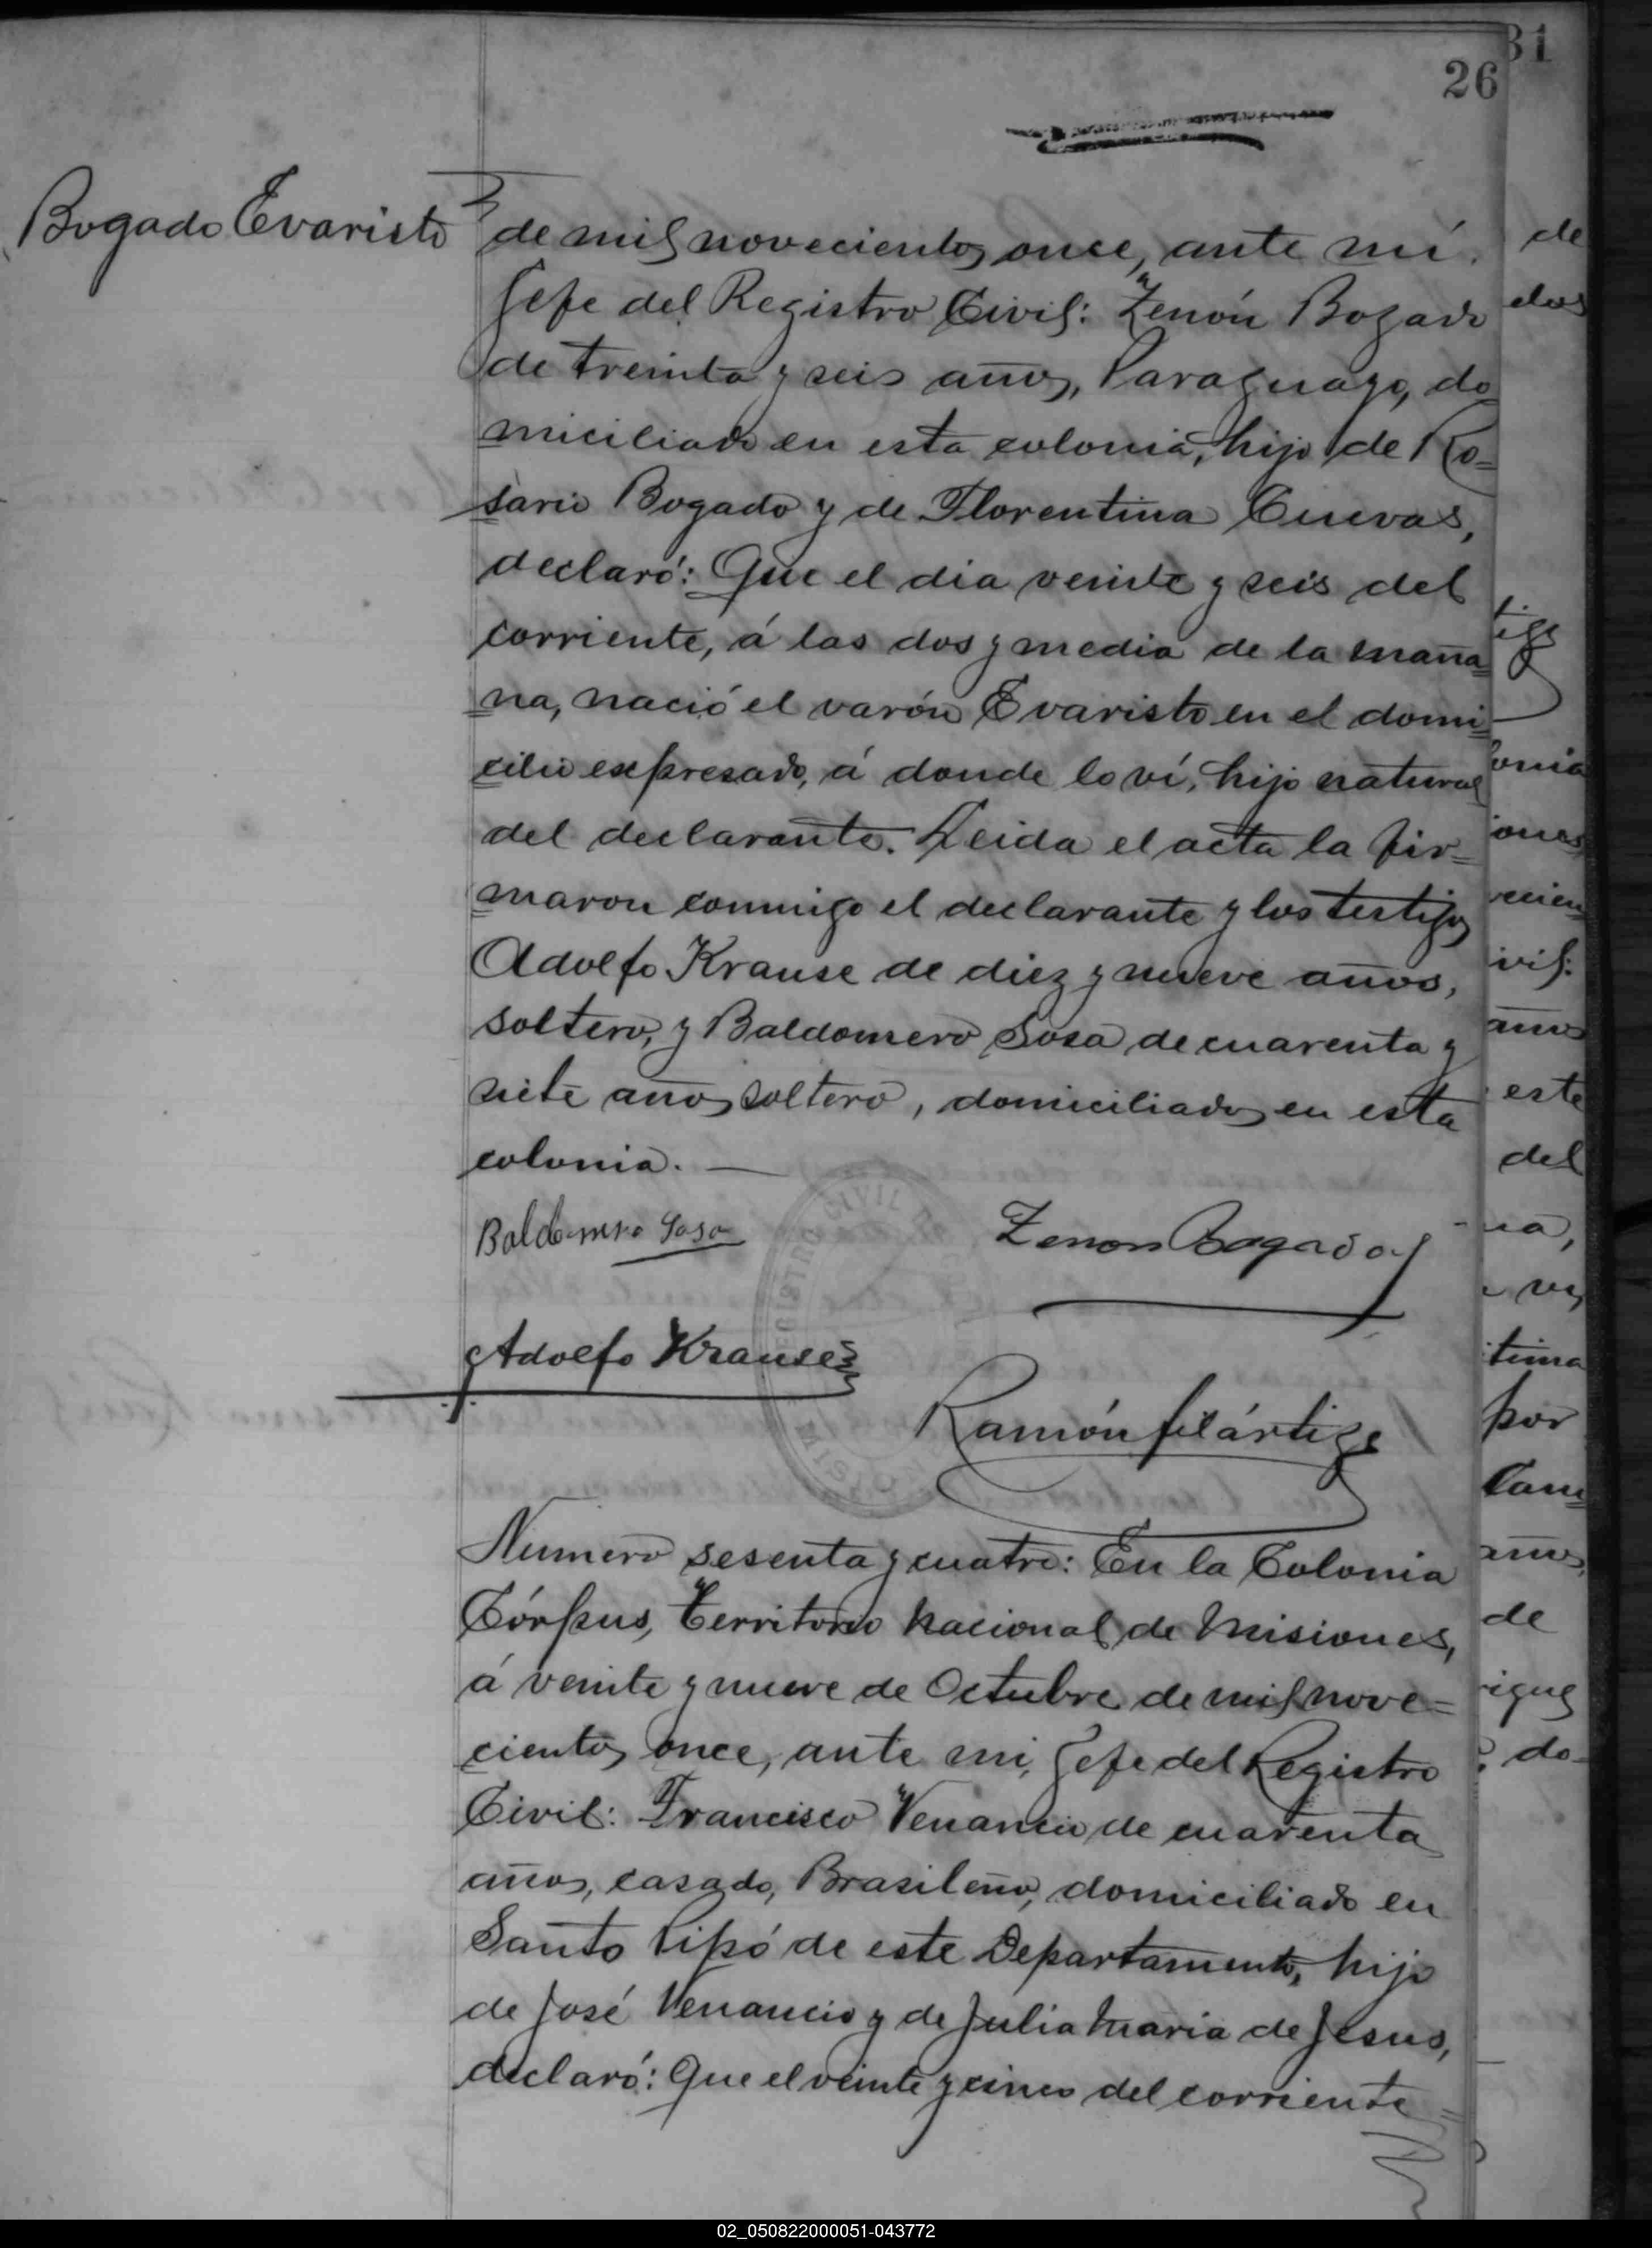 31
26
Bogado Evaristo
de mil novecientos once, ante mí,
Jefe del Registro Civil: Zenón Bogado
de treinta y seis años, Paraguayo, do
miciliado en esta colonia, hijo de Ro=
sario Bogado y de Florentina Cuevas,
declaró: Que el dia veinte y seis del
corriente, á las dos y media de la maña=
na, nació el varón Evaristo en el domi=
cilio expresado, á donde lo ví, hijo natural
del declarante. Leida el acta la fir=
maron conmigo el declarante y los testigos
Adolfo Krause de diez y nueve años,
soltero, y Baldomero Sosa de cuarenta y
siete años soltero, domiciliados en esta
colonia. —
Baldomero Sosa
Zenon Bogado
Adolfo Krause
Ramón filártiga
Numero sesenta y cuatro: En la Colonia
Córpus, Territorio Nacional de Misiones,
á veinte y nueve de Octubre de mil nove=
cientos once, ante mi, Jefe del Registro
Civil: Francisco Venancio de cuarenta
años, casado, Brasileño, domiciliado en
Santo Pipó de este Departamento, hijo
de José Venancio y de Julia Maria de Jesus,
declaró: Que el veinte y cinco del corriente=
de
dos
onia
iones
vecien
ivil:
años
este
del
na,
tima
por
años,
de
do
REGISTRO CIVIL
02_050822000051-043772